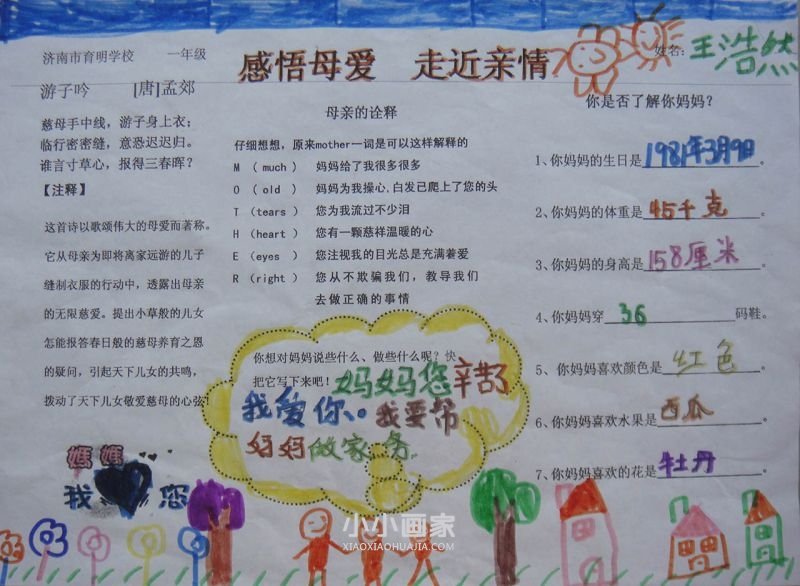 济南市育明学校 一年级
感悟母爱 走近亲情
姓名: 王浩然
游子吟 [唐]孟郊
慈母手中线，游子身上衣；
临行密密缝，意恐迟迟归。
谁言寸草心，报得三春晖？
【注释】
这首诗以歌颂伟大的母爱而著称。
它从母亲为即将离家远游的儿子
缝制衣服的行动中，透露出母亲
的无限慈爱。提出小草般的儿女
怎能报答春日般的慈母养育之恩
的疑问，引起天下儿女的共鸣，
拨动了天下儿女敬爱慈母的心弦!
媽媽
我 您
母亲的诠释
仔细想想，原来mother一词是可以这样解释的
M （ much ） 妈妈给了我很多很多
O （ old ） 妈妈为我操心,白发已爬上了您的头
T （tears ） 您为我流过不少泪
H （heart ） 您有一颗慈祥温暖的心
E （eyes ） 您注视我的目光总是充满着爱
R （right ） 您从不欺骗我们，教导我们
去做正确的事情
你想对妈妈说些什么、做些什么呢？快
把它写下来吧！妈妈您辛苦了
我爱你、。我要帮
妈妈做家务.
你是否了解你妈妈？
1、你妈妈的生日是1981年3月9日。
2、你妈妈的体重是45千克。
3、你妈妈的身高是158厘米。
4、你妈妈穿36码鞋。
5、你妈妈喜欢颜色是红色。
6、你妈妈喜欢水果是西瓜。
7、你妈妈喜欢的花是牡丹。
小小画家
XIAOXIAOHUAJIA.COM